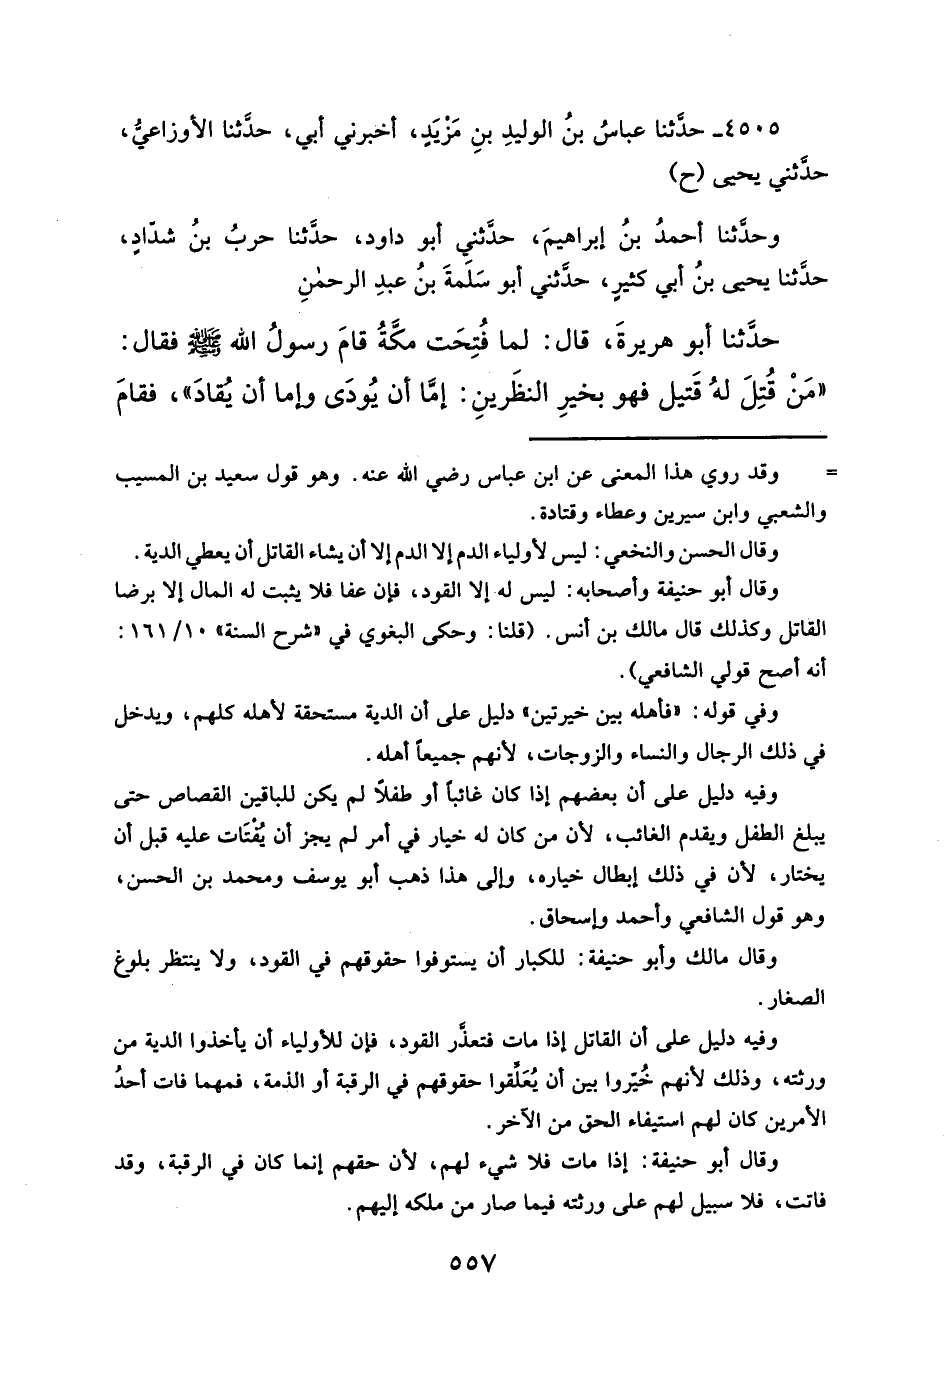 ٤٥٠٥ـ حدَّثنا عباسُ بنُ الوليدِ بنِ مَزْيَدٍ، أخبرني أبي، حدَّثنا الأوزاعيُّ،
حدَّثني يحيى (ح)
وحدَّثنا أحمدُ بنُ إبراهيمَ، حدَّثني أبو داود، حدَّثنا حربُ بنُ شدّادٍ،
حدَّثنا يحيى بنُ أبي كثيرٍ، حدَّثني أبو سَلَمةَ بنُ عبدِ الرحمٰنِ
حدَّثنا أبو هريرةَ، قال: لما فُتِحَت مكَّةُ قامَ رسولُ الله ﷺ فقال:
«مَنْ قُتِلَ لهُ قَتيل فهو بخيرِ النظَرينِ: إمَّا أن يُودَى وإما أن يُقادَ»، فقامَ
= وقد روي هذا المعنى عن ابن عباس رضي الله عنه. وهو قول سعيد بن المسيب
والشعبي وابن سيرين وعطاء وقتادة.
وقال الحسن والنخعي: ليس لأولياء الدم إلا الدم إلا أن يشاء القاتل أن يعطي الدية.
وقال أبو حنيفة وأصحابه: ليس له إلا القود، فإن عفا فلا يثبت له المال إلا برضا
القاتل وكذلك قال مالك بن أنس. (قلنا: وحكى البغوي في «شرح السنة» ١٠/ ١٦١:
أنه أصح قولي الشافعي).
وفي قوله: «فأهله بين خيرتين» دليل على أن الدية مستحقة لأهله كلهم، ويدخل
في ذلك الرجال والنساء والزوجات، لأنهم جميعاً أهله.
وفيه دليل على أن بعضهم إذا كان غائباً أو طفلاً لم يكن للباقين القصاص حتى
يبلغ الطفل ويقدم الغائب، لأن من كان له خيار في أمر لم يجز أن يُفْتَات عليه قبل أن
يختار، لأن في ذلك إبطال خياره، وإلى هذا ذهب أبو يوسف ومحمد بن الحسن،
وهو قول الشافعي وأحمد وإسحاق.
وقال مالك وأبو حنيفة: للكبار أن يستوفوا حقوقهم في القود، ولا ينتظر بلوغ
الصغار.
وفيه دليل على أن القاتل إذا مات فتعذَّر القود، فإن للأولياء أن يأخذوا الدية من
ورثته، وذلك لأنهم خُيّروا بين أن يُعَلِّقوا حقوقهم في الرقبة أو الذمة، فمهما فات أحدُ
الأمرين كان لهم استيفاء الحق من الآخر.
وقال أبو حنيفة: إذا مات فلا شيء لهم، لأن حقهم إنما كان في الرقبة، وقد
فاتت، فلا سبيل لهم على ورثته فيما صار من ملكه إليهم.
٥٥٧